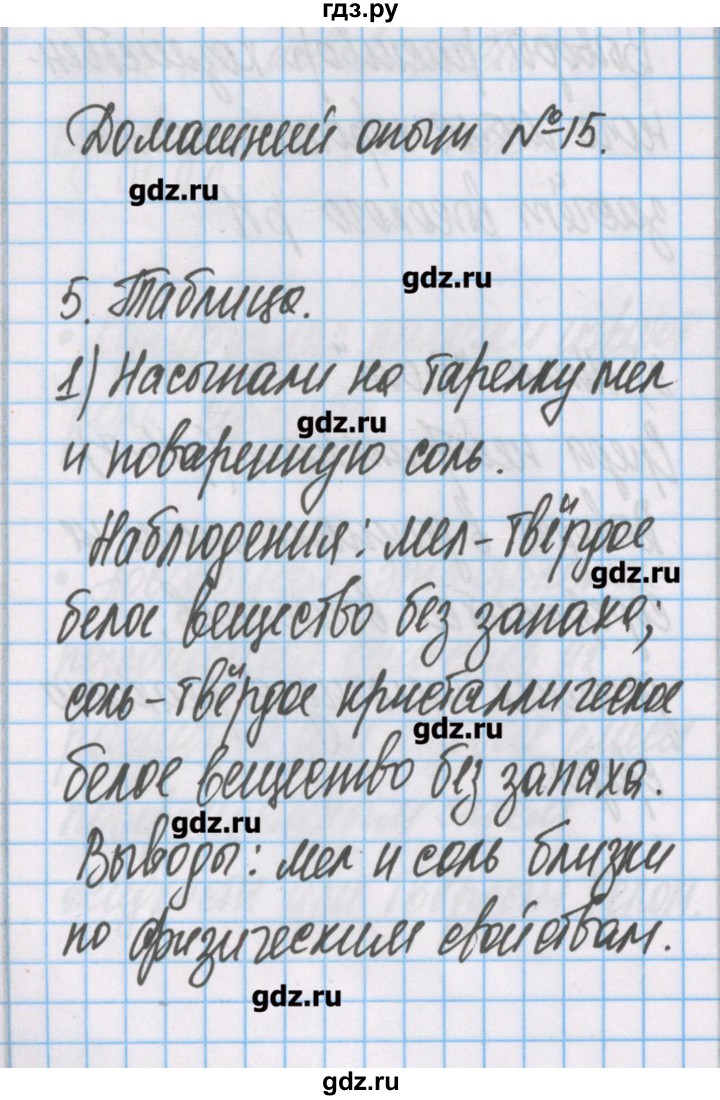 гдз.ру
Домашний опыт №15.
gdz.ru
gdz.ru
5. Таблица.
1) Насыпали на тарелку мел
gdz.ru
и поваренную соль.
Наблюдения: мел-твёрдое
gdz.ru
белое вещество без запаха;
соль-твёрдое кристаллическое
gdz.ru
белое вещество без запаха.
gdz.ru
Выводы: мел и соль близки
по физическим свойствам.
gdz.ru
gdz.ru